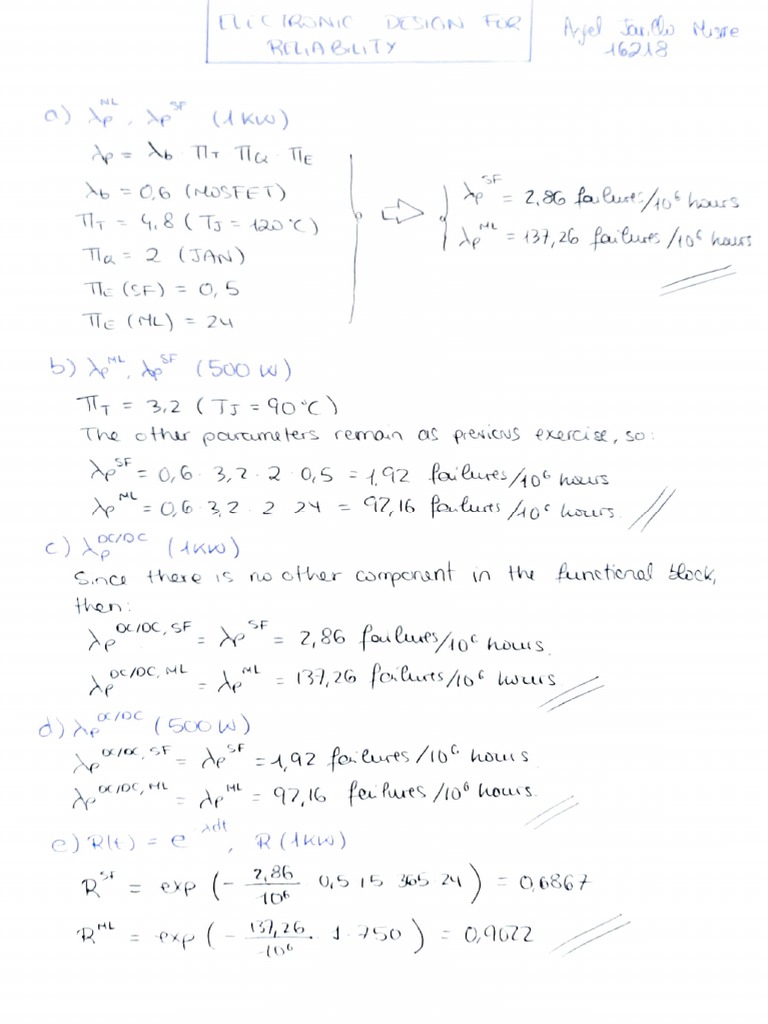 ELECTRONIC DESIGN FOR
RELIABILITY
16218
a) λp^ML, λp^SF (1KW)
λp = λb πT πQ πE
λb = 0,6 (MOSFET)
πT = 4,8 (TJ = 120°C)
πQ = 2 (JAN)
πE (SF) = 0,5
πE (ML) = 24
⇒ λp^SF = 2,86 failures/10^6 hours
λp^ML = 137,26 failures/10^6 hours
b) λp^ML, λp^SF (500 W)
πT = 3,2 (TJ = 90°C)
The other parameters remain as previous exercise, so:
λp^SF = 0,6 · 3,2 · 2 · 0,5 = 1,92 failures/10^6 hours
λp^ML = 0,6 · 3,2 · 2 · 24 = 92,16 failures/10^6 hours.
c) λp^DC/DC (1KW)
Since there is no other component in the functional block,
then:
λp^DC/DC, SF = λp^SF = 2,86 failures/10^6 hours.
λp^DC/DC, ML = λp^ML = 137,26 failures/10^6 hours
d) λp^DC/DC (500 W)
λp^DC/DC, SF = λp^SF = 1,92 failures/10^6 hours
λp^DC/DC, ML = λp^ML = 92,16 failures/10^6 hours.
e) R(t) = e^-λdt, R (1KW)
R^SF = exp (- 2,86/10^6 · 0,5 · 15 · 365 · 24) = 0,6867
R^ML = exp (- 137,26/10^6 · 1 · 750) = 0,9022